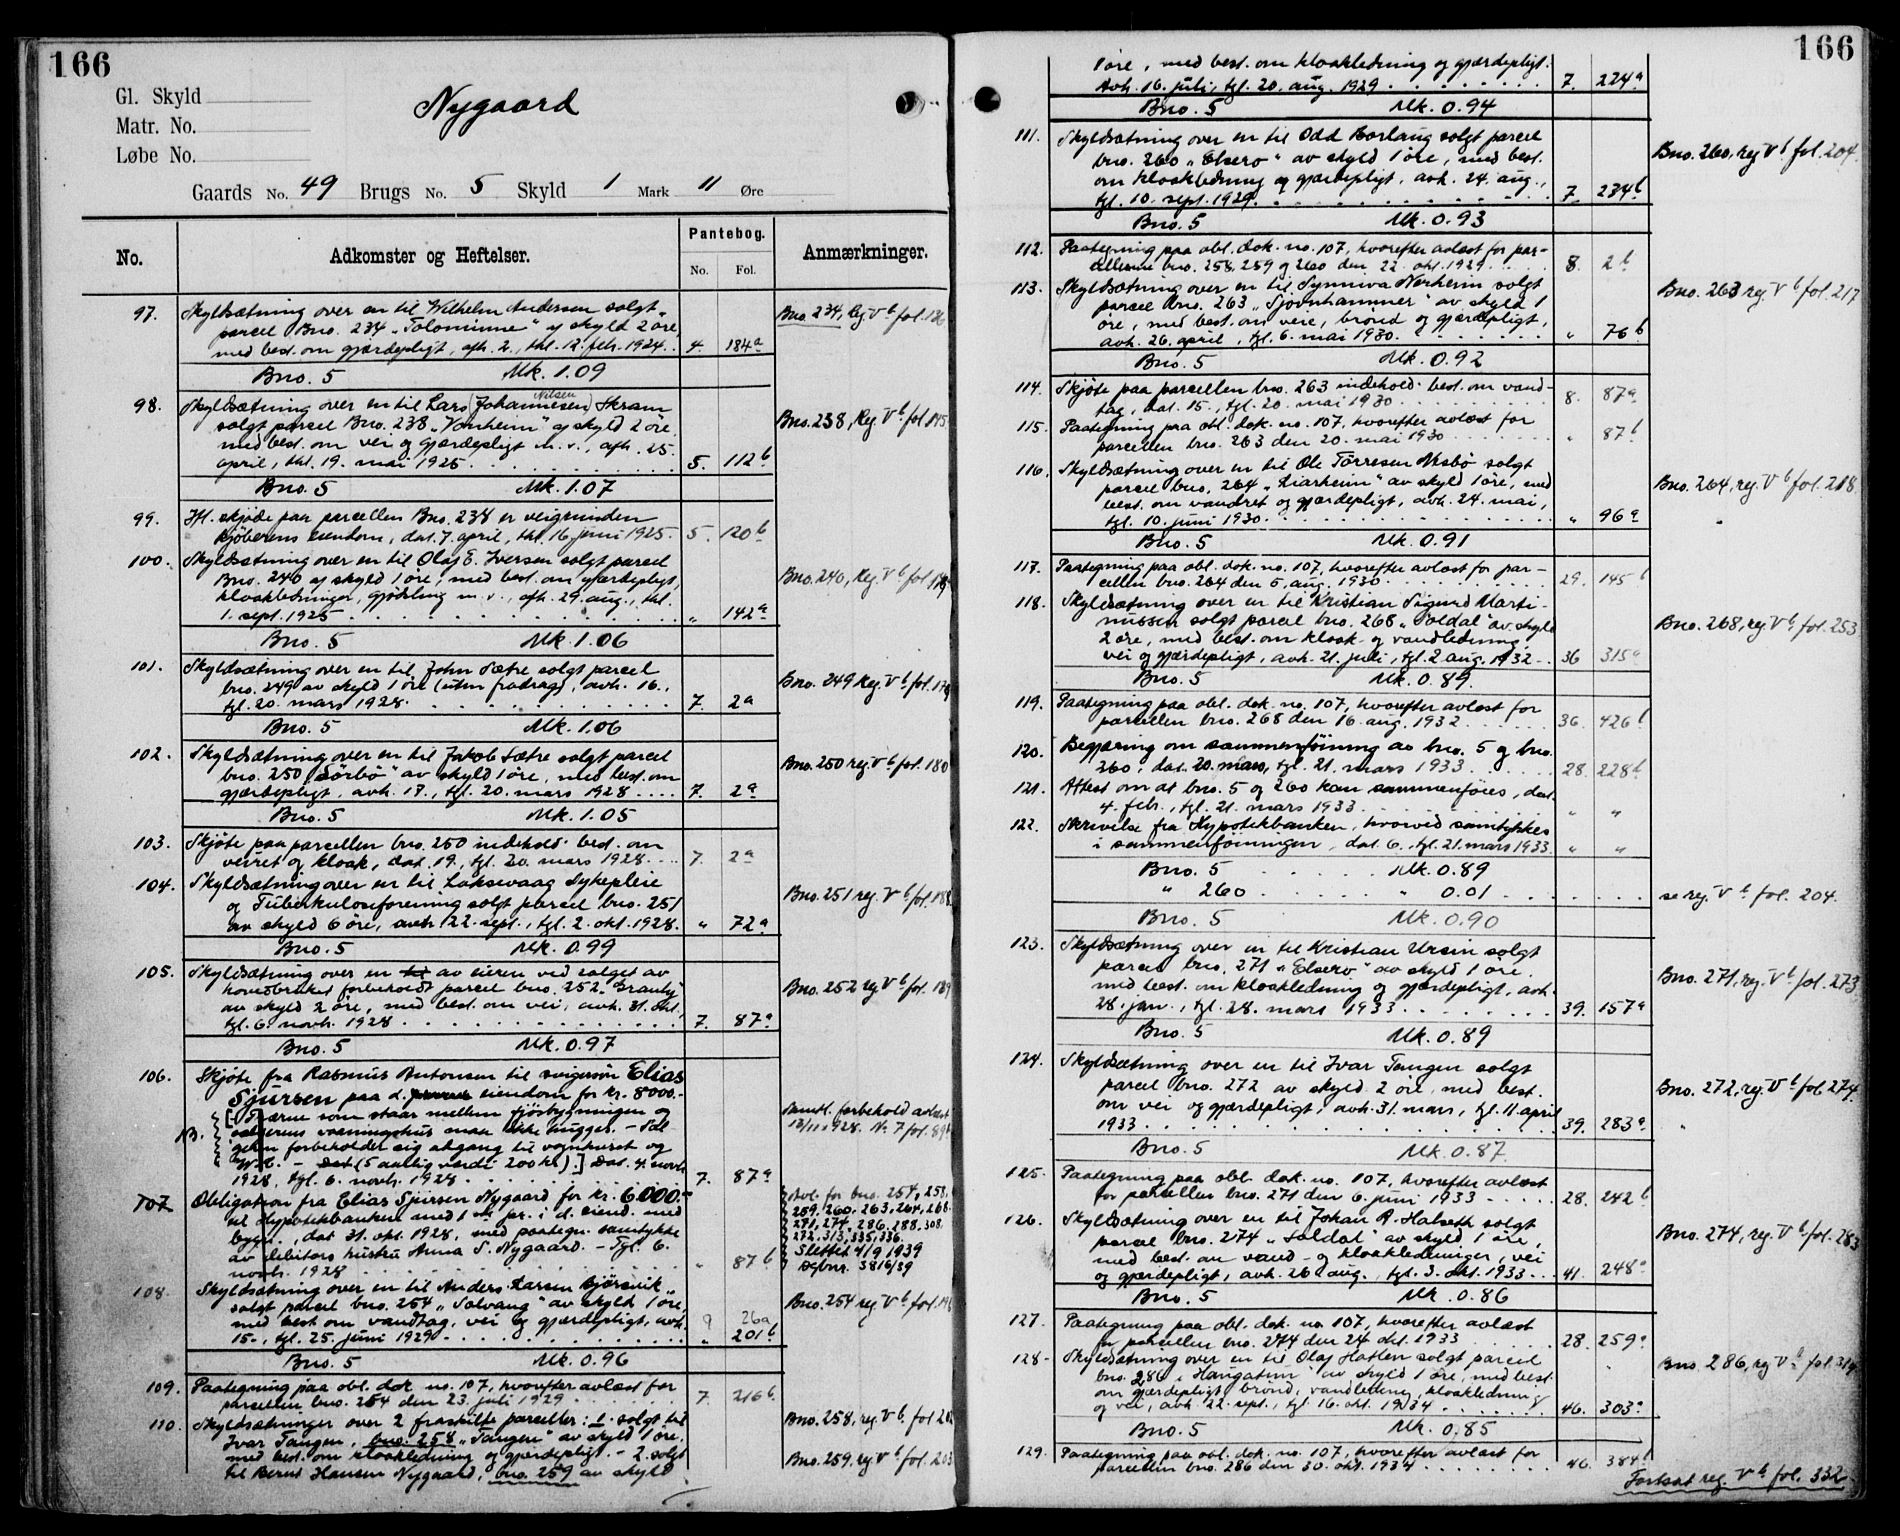 166
Gl. Skyld
Matr. No.
Løbe No.
Nygaard
Gaards No. 49 Brugs No. 5 Skyld 1 Mark 11 Øre
No.
Adkomster og Heftelser.
Pantebog.
No. Fol.
Anmærkninger.
97. Skyldsætning over en til Wilhelm Andersen solgt
parcel Bno. 234 „Solominne" af skyld 2 øre,
med best. om gjærdepligt, afh. 2., thl. 12. febr. 1924. 4. 184a
Bno. 234, Reg. Vb fol. 136
Bno. 5 Mk. 1.09
98. Skyldsætning over en til Lars (Johannesen) Skram
Nilsen
solgt parcel Bno. 238 „Vonheim" af skyld 2 øre
med best. om vei og gjærdepligt m. v., afh. 25.
april, thl. 19. mai 1925 5. 112b
Bno. 238, Reg. Vb fol. 145
Bno. 5 Mk. 1.07
99. Hfl. skjøde paa parcellen Bno. 238 er veigrunden
kjøberens eiendom, dat. 7. april, thl. 16. juni 1925. 5. 120b
100. Skyldsætning over en til Olaf E. Iversen solgt parcel
Bno. 240 af skyld 1 øre, med best. om gjærdepligt,
kloakledninger, gjødsling m. v., afh. 29. aug., thl.
1. sept. 1925 „ 142a
Bno. 240, Reg. Vb fol.
Bno. 5 Mk. 1.06
101. Skyldsætning over en til John Sætre solgt parcel
bno. 249 av skyld 1 øre (uten fradrag), avh. 16.,
tgl. 20. mars 1928. 7. 2a
Bno. 249 Reg. Vb fol. 179
Bno. 5 Mk. 1.06
102. Skyldsætning over en til Jakob Sætre solgt parcel
bno. 250 „Sörbö" av skyld 1 øre, med best. om
gjærdepligt, avh. 17., tgl. 20. mars 1928 7. 2a
Bno. 250 reg. Vb fol. 180
Bno. 5 Mk. 1.05
103. Skjöte paa parcellen bno. 250 indehold. best. om
veiret og kloak, dat. 19., tgl. 20. mars 1928. 7. 2a
104. Skyldsætning over en til Laksevaag Sykepleie
og Tuberkuloseforening solgt parcel bno. 251
av skyld 6 øre, avh. 22. sept., tgl. 2. okt. 1928. „ 72a
Bno. 251 reg. Vb fol. 188
Bno. 5 Mk. 0.99
105. Skyldsætning over en til av eieren ved salget av
hovedbruket forbeholdt parcel bno. 252 „Granly"
av skyld 2 øre, med best. om vei, avh. 31. okt.
tgl. 6. novb. 1928 7. 87a
Bno. 252 reg. Vb fol. 189
Bno. 5 Mk. 0.97
106. Skjöte fra Rasmus Antonsen til svigersøn Elias
Sjursen paa d. eiendom for kr. 8000.-
B. [- Trærne som staar mellem fjösbygningen og
sælgerens vaaningshus maa ikke hugges. - Sæl-
geren forbeholder sig adgang til vognhuset og
W.C. - Det (5 aarlig værdi 200 kr.).] Dat. 4. novb.
1928, tgl. 6. novb. 1928 7. 87a
Samtl. forbehold avlæst
13/11 1928. No 7 fol. 89b
107 Obligation fra Elias Sjursen Nygaard for kr. 6000.-
til Hypotekbanken med 1ste pr. i d. eiend. med
bygn., dat. 31. okt. 1928, med paategn. samtykke
av debitors hustru Anna S. Nygaard. - Tgl. 6.
novb. 1928 „ 87b
Avl. for bno. 254, 258,
259, 260, 263, 264, 268
271, 274, 286, 288, 308,
272, 313, 335, 336.
Slettet 4/9 1939
Dagbnr. 3816/39
108. Skyldsætning over en til Anders Larsen Bjørsvik
solgt parcel bno. 254 „Solvang" av skyld 1 øre,
med best om vandtag, vei og gjærdepligt, avh.
15., tgl. 25. juni 1929 9 26a
„ 201b
Bno. 254 reg. Vb fol. 196
Bno. 5 Mk. 0.96
109. Paategning paa obl. dok. no. 107, hvorefter avlæst for
parcellen bno. 254 den 23. juli 1929 7. 216b
110. Skyldsætninger over 2 fraskilte parceller: 1. solgt til
Ivar Tangen, bno. 258 „Tangen" av skyld 1 øre,
med best. om kloakledning og gjærdepligt. - 2. solgt
til Bernt Hansen Nygaard, bno. 259 av skyld
Bno. 258, reg. Vb fol. 202
Bno. 259, reg. Vb fol. 203
166
1 øre, med best. om kloakledning og gjærdepligt.
Avh. 16. juli, tgl. 20. aug. 1929 7. 224a
Bno. 5 Mk. 0.94
111. Skyldsætning over en til Odd Borlaug solgt parcel
bno. 260 „Elsero" av skyld 1 øre, med best.
om kloakledning og gjærdepligt, avh. 24. aug.,
tgl. 10. sept. 1929. 7. 234b
Bno. 260, reg Vb fol. 204.
Bno. 5 Mk. 0.93
112. Paategning paa obl. dok. no. 107, hvorefter avlæst for par-
cellerne bno. 258, 259 og 260 den 22. okt. 1929 8. 2b
113. Skyldsætning over en til Synniva Nerheim solgt
parcel bno. 263 „Sjovnhammer" av skyld 1
øre, med best. om veie, brønd og gjærdepligt,
avh. 26. april, tgl. 6. mai 1930. „ 76b
Bno. 263 reg. Vb fol. 217
Bno. 5 Mk. 0.92
114. Skjöte paa parcellen bno. 263 indehold. best. om vand-
tag, dat. 15., tgl. 20. mai 1930 8. 87a
115. Paategning paa obl. dok. no. 107, hvorefter avlæst for
parcellen bno. 263 den 20. mai 1930 „ 87b
116. Skyldsætning over en til Ole Tørresen Nesbö solgt
parcel bno. 264 „Liarheim" av skyld 1 øre, med
best. om vandret og gjærdepligt, avh. 24. mai,
tgl. 10. juni 1930. „ 96a
Bno. 264, reg. Vb fol. 218
Bno. 5 Mk. 0.91
117. Paategning paa obl. dok. no. 107, hvorefter avlæst for par-
cellen bno. 264 den 5. aug. 1930 29. 145b
118. Skyldsætning over en til Kristian Sigurd Marti-
nussen solgt parcel bno. 268 „Soldal" av skyld
2 øre, med best. om kloak- og vandledning,
vei og gjærdepligt, avh. 21. juli, tgl. 2. aug. 1932 36 315a
Bno. 268, reg. Vb fol. 253
Bno. 5 Mk. 0.89.
119. Paategning paa obl. dok. no. 107, hvorefter avlæst for
parcellen bno. 268 den 16. aug. 1932 36. 426b
120. Begjæring om sammenföining av bno. 5 og bno.
260, dat. 20. mars, tgl. 21. mars 1933 28. 228b
121. Attest om at bno. 5 og 260 kan sammenföies, dat.
4. febr., tgl. 21. mars 1933 „ „
122. Skrivelse fra Hypotekbanken, hvorved samtykkes
i sammenföiningen, dat. 6., tgl. 21. mars 1933. „ „
Bno. 5 Mk. 0.89
„ 260 „ 0.01 se reg. Vb fol. 204.
Bno. 5 Mk. 0.90
123. Skyldsætning over en til Kristian Ursin solgt
parcel bno. 271 „Elsero" av skyld 1 øre.
med best. om kloakledning og gjærdepligt, avh.
28. jan., tgl. 28. mars 1933 39. 157a
Bno. 271, reg. Vb fol. 273
Bno. 5 Mk. 0.89
124. Skyldsætning over en til Ivar Tangen solgt
parcel bno. 272 av skyld 2 öre, med best.
om vei og gjærdepligt, avh. 31. mars, tgl. 11. april
1933 39. 283a
Bno. 272, reg. Vb fol. 274.
Bno. 5 Mk. 0.87.
125. Paategning paa obl. dok. no. 107, hvorefter avlæst
for parcellen bno. 271 den 6. juni 1933 28. 242b
126. Skyldsætning over en til Johan A. Halseth solgt
parcel bno. 274 „Soldal" av skyld 1 øre,
med best. om vand- og kloakledninger, vei
og gjærdepligt, avh. 26. aug., tgl. 3. okt. 1933 41. 248a
Bno. 274, reg. Vb fol. 283
Bno. 5 Mk. 0.86
127. Paategning paa obl. dok. no. 107, hvorefter avlæst
for parcellen bno. 274 den 24. okt. 1933 28. 259a
128- Skyldsætning over en til Olaf Hatlen solgt parcel
bno. 286 „Haugatun" av skyld 1 øre, med best.
om gjærdepligt, brönd, vandledning, kloakledning
og vei, avh. 22. sept., tgl. 16. okt. 1934 46. 303a
Bno. 286, reg Vb fol. 314
Bno. 5 Mk. 0.85
129. Paategning paa obl. dok. no. 107, hvorefter avlæst for
parcellen bno. 286 den 30. okt. 1934 46. 384b
Fortsat reg. Vb fol. 332